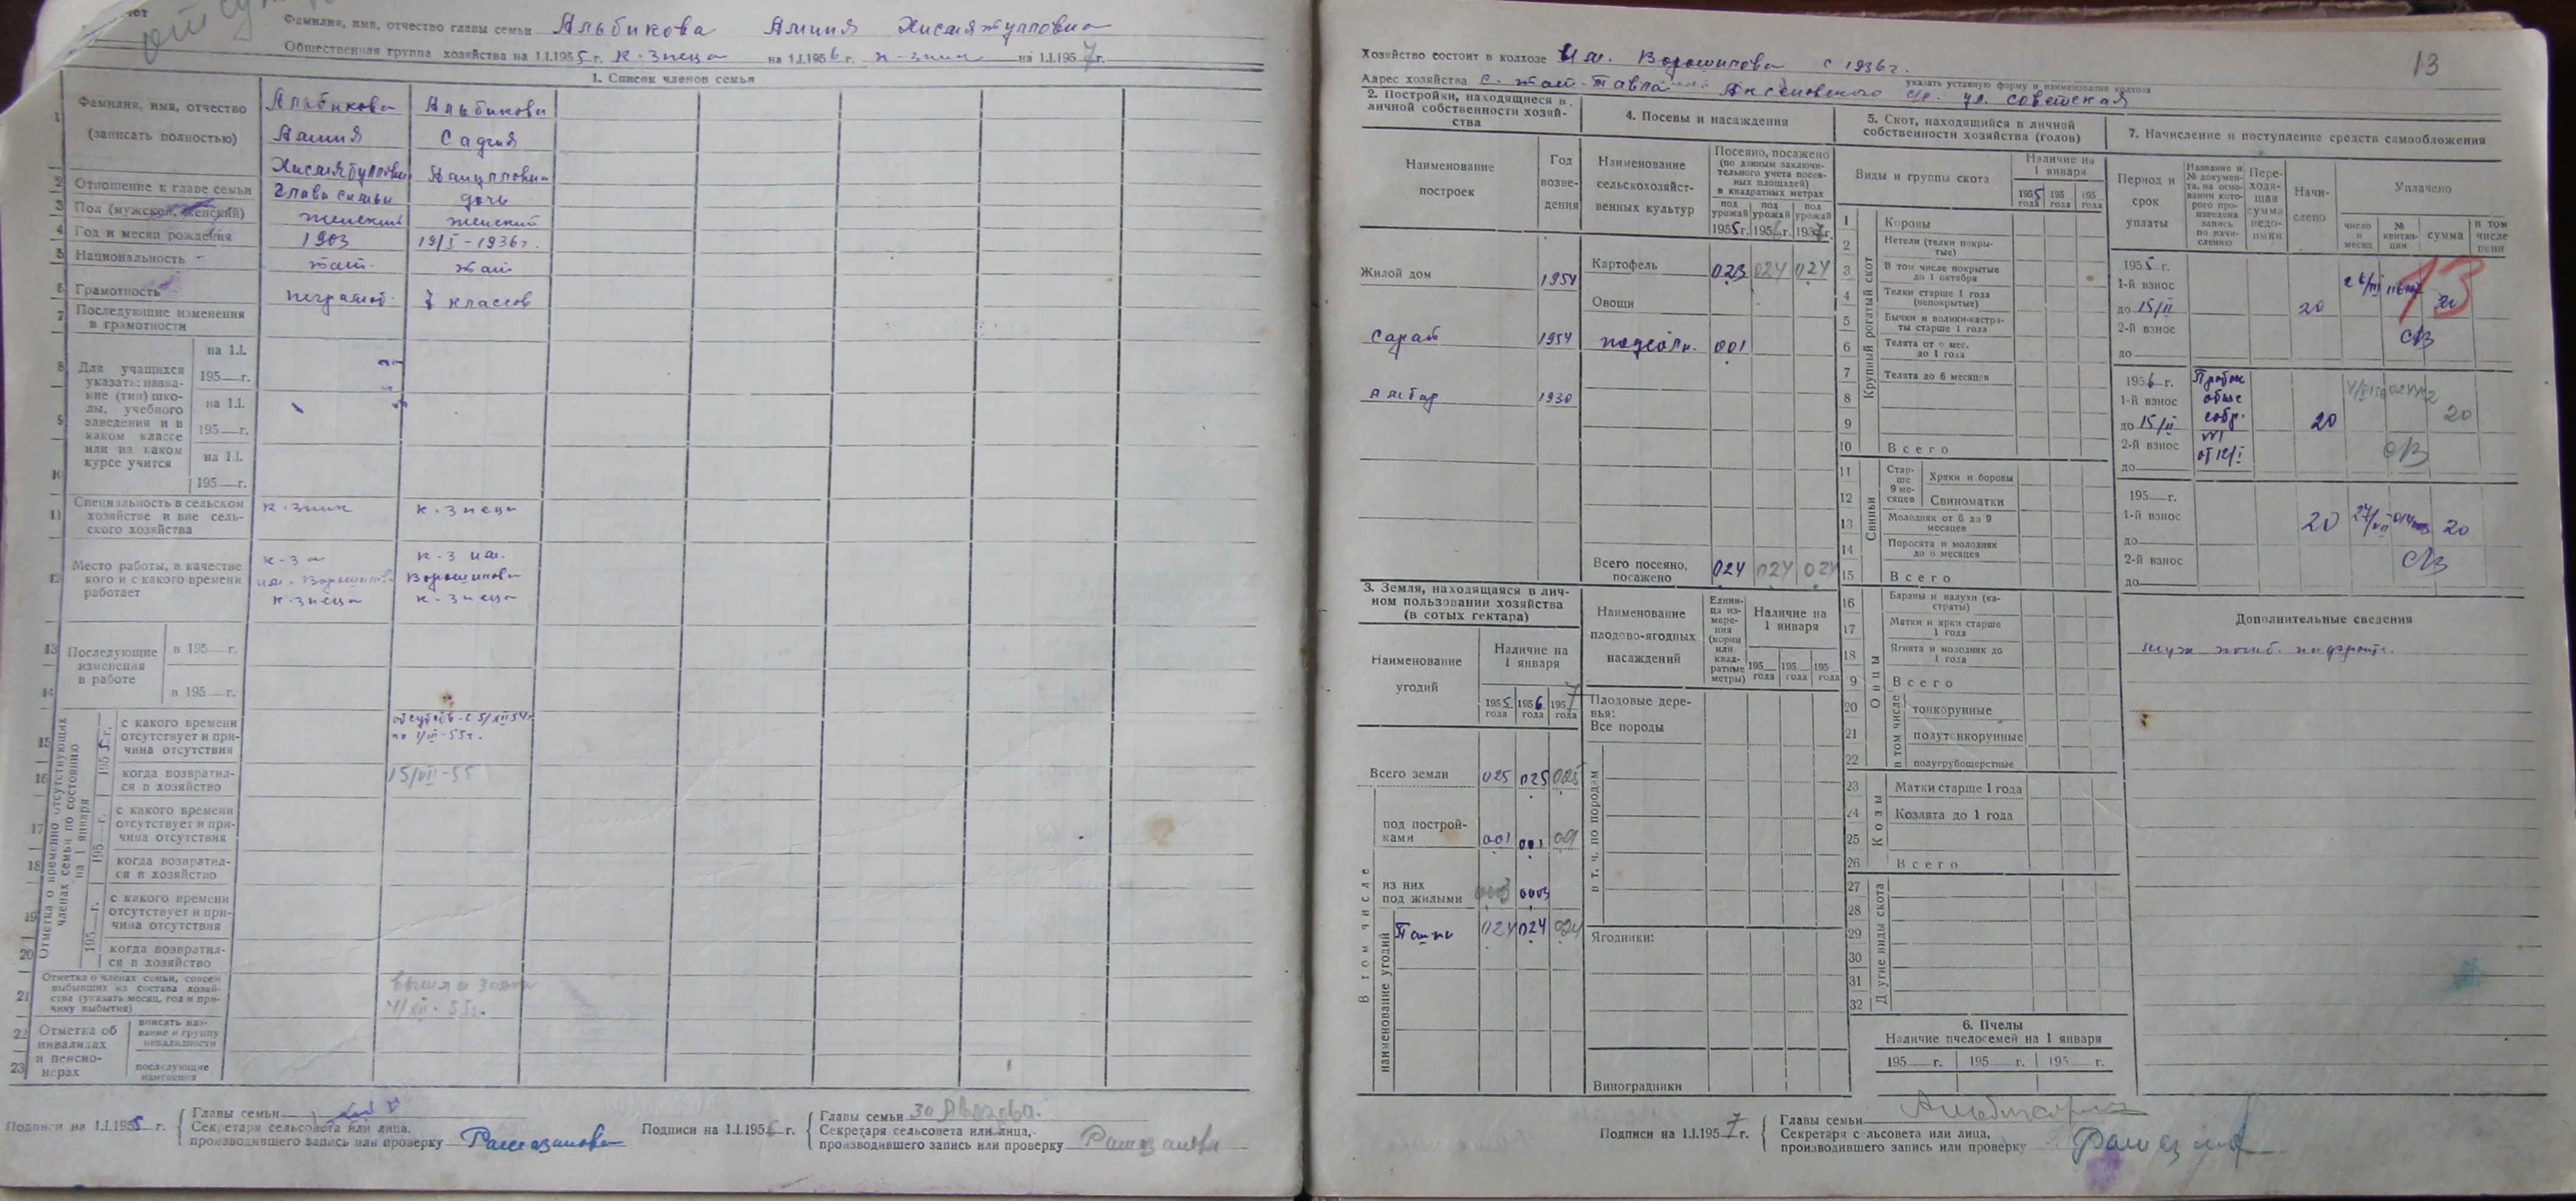 Фамилия, имя, отчество главы семьи Альбикова Амия Хисамятулловна
Общественная группа хозяйства на 1.I.1955 г. к-знеца на 1.I.1956 г. к-зник на 1.I.1957 г.
1. Список членов семьи
1 Фамилия, имя, отчество (записать полностью) Альбикова Альбикова
Амия Садия
2 Отношение к главе семьи глава семьи дочь
3 Пол (мужской, женский) женский женский
4 Год и месяц рождения 1903 19/I-1936г.
5 Национальность тат. тат
6 Грамотность неграмот. 7 классов
7 Последующие изменения в грамотности
8 Для учащихся указать: название (тип) школы, учебного заведения и в каком классе или на каком курсе учится
на 1.I.
195 г.
9 на 1.I.
195 г.
10 на 1.I.
195 г.
11 Специальность в сельском хозяйстве и вне сельского хозяйства к-зник к-знеца
12 Место работы, в качестве кого и с какого времени работает
к-з к-з им.
им. Ворошилова Ворошилова
к-знеца к-знеца
13 Последующие изменения в работе в 195 г.
14 в 195 г.
Отметка о временно отсутствующих членах семьи по состоянию на 1 января
1955 г.
15 с какого времени отсутствует и причина отсутствия отсутств. с 5/XII 54г
16 когда возвратился в хозяйство 15/VII-55
195 г.
17 с какого времени отсутствует и причина отсутствия
18 когда возвратился в хозяйство
195 г.
19 с какого времени отсутствует и причина отсутствия
20 когда возвратился в хозяйство
21 Отметка о членах семьи, совсем выбывших из состава хозяйства (указать месяц, год и причину выбытия) вышла замуж
4/XII-55г.
22 Отметка об инвалидах и пенсионерах вписать название и группу инвалидности
23 последующие изменения
Подписи на 1.I.1955 г.
Главы семьи
Секретаря сельсовета или лица, производившего запись или проверку Рамазанова
Подписи на 1.I.1956 г.
Главы семьи
Секретаря сельсовета или лица, производившего запись или проверку Рамазанова
13
Хозяйство состоит в колхозе Им. Ворошилова с 1936г.
указать уставную форму и наименование колхоза
Адрес хозяйства с. тат-Тавла Аксеновского с/с. ул. советская
2. Постройки, находящиеся в личной собственности хозяйства
Наименование построек Год возведения
Жилой дом 1954
Сарай 1954
Амбар 1930
3. Земля, находящаяся в личном пользовании хозяйства (в сотых гектара)
Наименование угодий Наличие на 1 января
1955 года 1956 года 1957 года
Всего земли 025 025 025
В том числе
под постройками 001 001 001
из них под жилыми 0003 0003
наименование угодий
Пашни 024 024 024
4. Посевы и насаждения
Наименование сельскохозяйственных культур
Посеяно, посажено (по данным заключительного учета посевных площадей) в квадратных метрах
под урожай 1955 г. под урожай 1956 г. под урожай 1957 г.
Картофель 023 024 024
Овощи
подсолн. 001
Всего посеяно, посажено 024 024 024
Наименование плодово-ягодных насаждений
Единица измерения (корни или квадратные метры)
Наличие на 1 января
195 года 195 года 195 года
Плодовые деревья:
Все породы
в т. ч. по породам
Ягодники:
Виноградники
5. Скот, находящийся в личной собственности хозяйства (голов)
Виды и группы скота
Наличие на 1 января
1955 года 195 года 195 года
Крупный рогатый скот
1 Коровы
2 Нетели (телки покрытые)
3 В том числе покрытые до 1 октября
4 Телки старше 1 года (непокрытые)
5 Бычки и волики-кастраты старше 1 года
6 Телята от 6 мес. до 1 года
7 Телята до 6 месяцев
8
9
10 Всего
Свиньи
Старше 9 месяцев
11 Хряки и боровы
12 Свиноматки
13 Молодняк от 6 до 9 месяцев
14 Поросята и молодняк до 6 месяцев
15 Всего
Овцы
16 Бараны и валухи (кастраты)
17 Матки и ярки старше 1 года
18 Ягнята и молодняк до 1 года
9 Всего
в том числе
20 тонкорунные
21 полутонкорунные
22 полугрубошерстные
Козы
23 Матки старше 1 года
24 Козлята до 1 года
25
26 Всего
Другие виды скота
27
28
29
30
31
32
6. Пчелы
Наличие пчелосемей на 1 января
195 г. 195 г. 195 г.
7. Начисление и поступление средств самообложения
Период и срок уплаты
Название и № документа, на основании которого произведена запись по начислению
Переходящая сумма недоимки
Начислено
Уплачено
число и месяц № квитанции сумма в том числе пени
1955 г.
1-й взнос
до 15/II 20
13
2-й взнос
до
1956 г.
1-й взнос
до 15/II собр. 20 20
2-й взнос №1
до от 12/I
195 г.
1-й взнос 20 20
до
2-й взнос
до
Дополнительные сведения
муж погиб. на фронте.
Подписи на 1.I.1957 г.
Главы семьи Альбикова
Секретаря сельсовета или лица, производившего запись или проверку